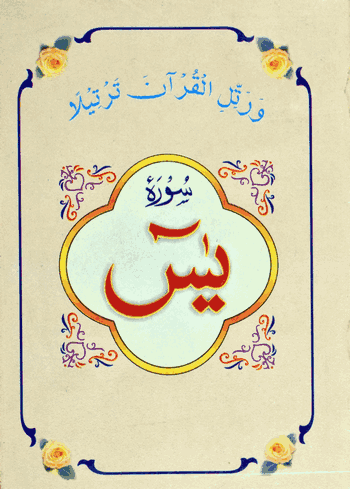 وَرَتِّلِ الْقُرْآنَ تَرْتِيْلًا
سُوْرَۃُ
يٰسٓ